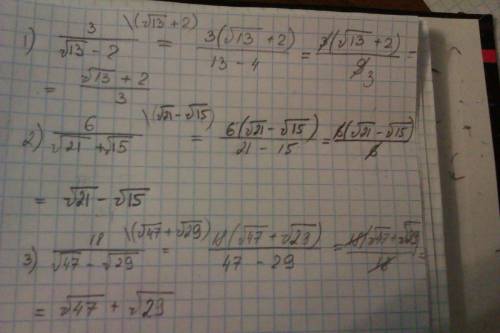 1) 3/(√13 - 2) \(√13 + 2) = 3(√13 + 2)/(13 - 4) = 3(√13 + 2)/9 3 =
= (√13 + 2)/3
2) 6/(√21 + √15) \(√21 - √15) = 6(√21 - √15)/(21 - 15) = 6(√21 - √15)/6
= √21 - √15
3) 18/(√47 - √29) \(√47 + √29) = 18(√47 + √29)/(47 - 29) = 18(√47 + √29)/18 =
= √47 + √29